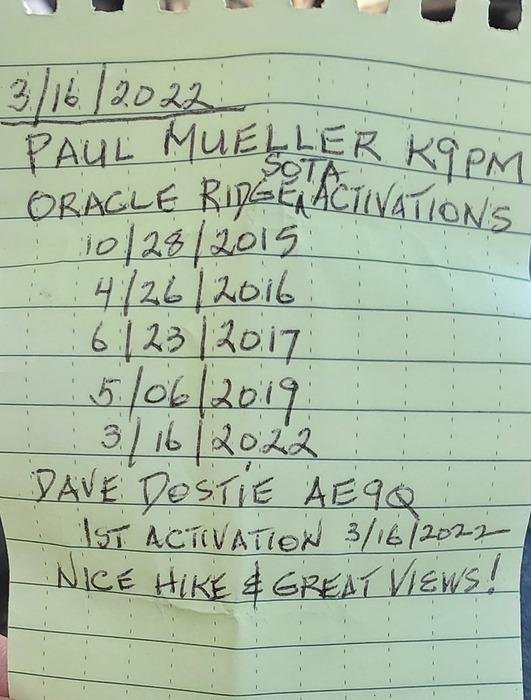 3/16/2022
PAUL MUELLER K9PM
ORACLE RIDGE SOTA ACTIVATIONS
10/28/2015
4/26/2016
6/23/2017
5/06/2019
3/16/2022
DAVE DOSTIE AE9Q
1ST ACTIVATION 3/16/2022
NICE HIKE & GREAT VIEWS!